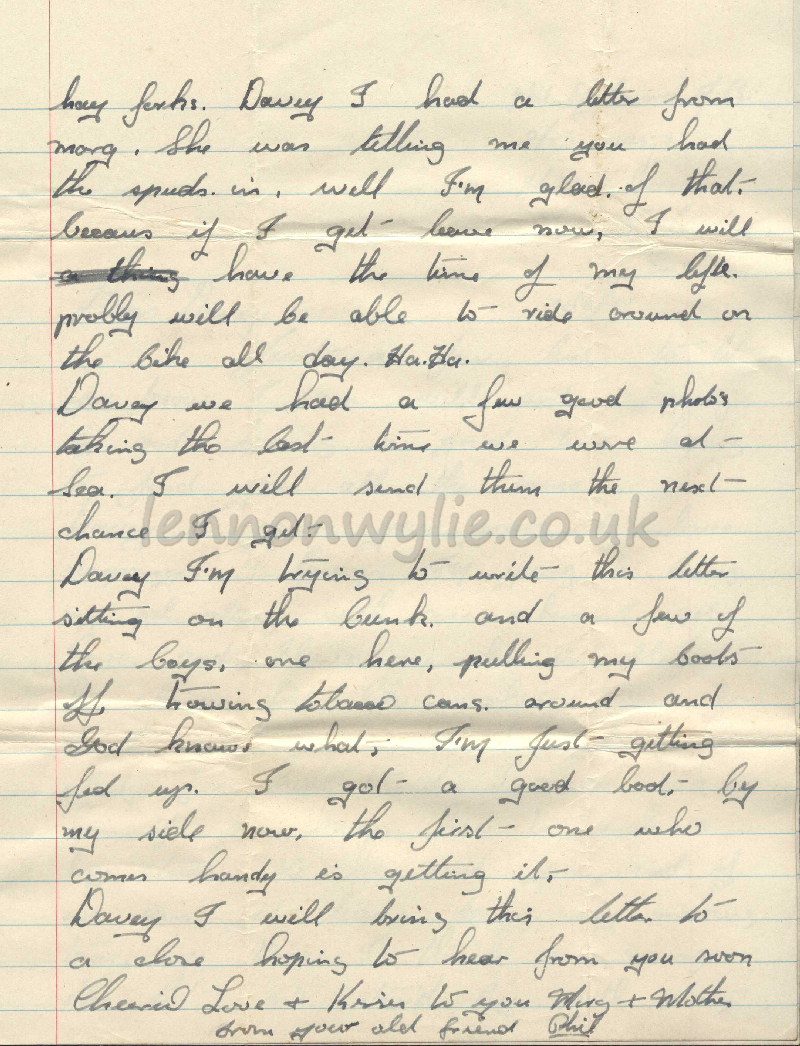 hay forks. Davey I had a letter from
marg. She was telling me you had
the spuds. in, well I'm glad. of that.
becaus if I get leave now, I will
a thing have the time of my life.
probly will be able to ride around on
the bike all day. Ha. Ha.
Davey we had a few good photo's
taking the last time we were at
Sea. I will send them the next
lennonwylie.co.uk
chance I get.
Davey I'm trying to write this letter
sitting on the bunk. and a few of
the boys. one here, pulling my boots
off. trowing tobacco cans. around and
God knows what, I'm Just getting
fed up. I got a good boot, by
my side now, the first one who
comes handy is getting it,
Davey I will bring this letter to
a close hoping to hear from you soon
Cheerio Love + Kisses to you Marg + Mother
from your old friend Phil